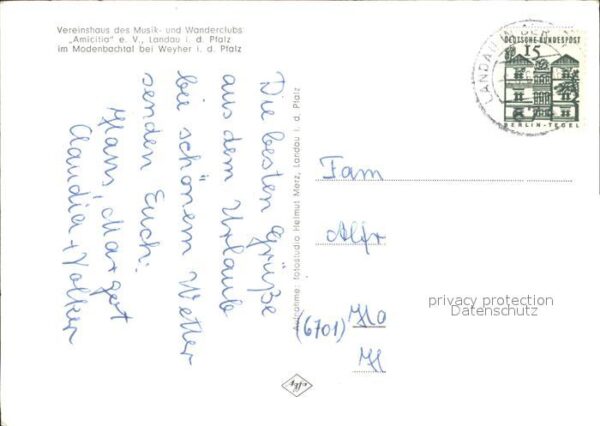 Vereinshaus des Musik- und Wanderclubs
„Amicitia" e. V., Landau i. d. Pfalz
im Modenbachtal bei Weyher i. d. Pfalz
Die besten Grüße
aus dem Urlaub
bei schönem Wetter
senden Euch:
Hans, Margot
Claudia + Volker
Aufnahme: fotostudio Helmut Merz, Landau i. d. Pfalz
LANDAU IN DER
DEUTSCHE BUNDESPOST
15
BERLIN-TEGEL
Fam
Alfr
(6701) Ho
H
privacy protection
Datenschutz